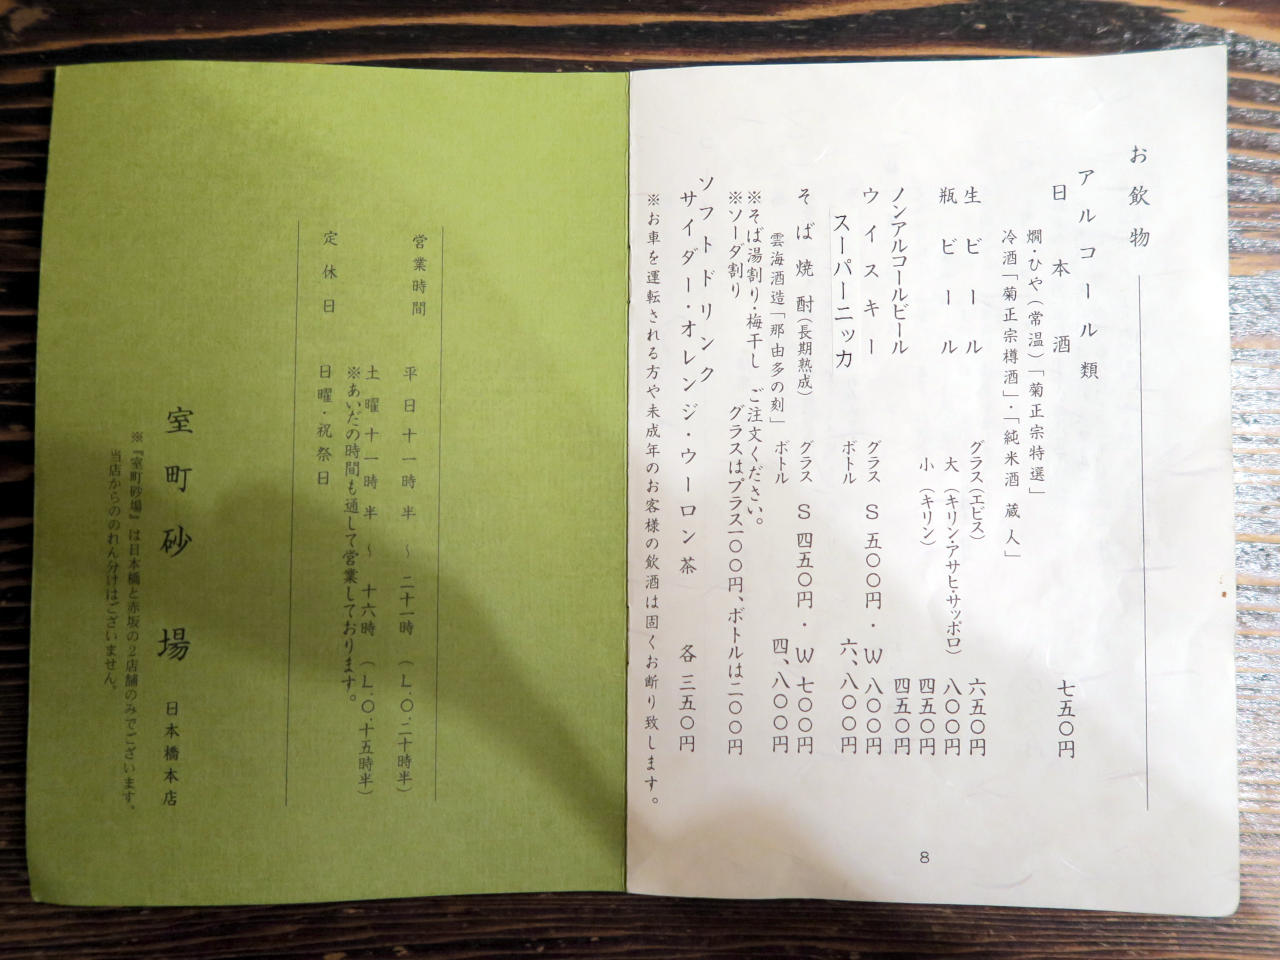 お飲物
アルコール類
日本酒 七五〇円
燗・ひや（常温）「菊正宗特選」
冷酒「菊正宗樽酒」・「純米酒 蔵人」
生ビール グラス（エビス） 六五〇円
瓶ビール 大（キリン・アサヒ・サッポロ） 八〇〇円
小（キリン） 四五〇円
ノンアルコールビール 四五〇円
ウイスキー グラス S 五〇〇円・W 八〇〇円
スーパーニッカ ボトル 六、八〇〇円
そば焼酎（長期熟成） グラス S 四五〇円・W 七〇〇円
雲海酒造「那由多の刻」 ボトル 四、八〇〇円
※そば湯割り・梅干し ご注文ください。
※ソーダ割り グラスはプラス一〇〇円、ボトルは二〇〇円
ソフトドリンク
サイダー・オレンジ・ウーロン茶 各三五〇円
※お車を運転される方や未成年のお客様の飲酒は固くお断り致します。
8
営業時間 平日十一時半 〜 二十一時 （L.O.二十時半）
土曜十一時半 〜 十六時 （L.O.十五時半）
※あいだの時間も通して営業しております。
定休日 日曜・祝祭日
室町砂場 日本橋本店
※『室町砂場』は日本橋と赤坂の2店舗のみでございます。
当店からののれん分けはございません。